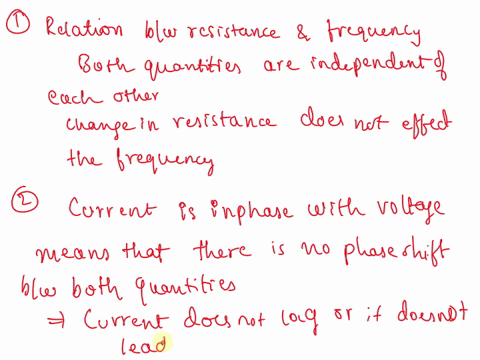 ① Relation b/w resistance & frequency
Both quantities are independent of
each other
change in resistance does not effect
the frequency
② Current is inphase with voltage
means that there is no phase shift
b/w both quantities
⇒ Current does not lag or it doesnot
lead